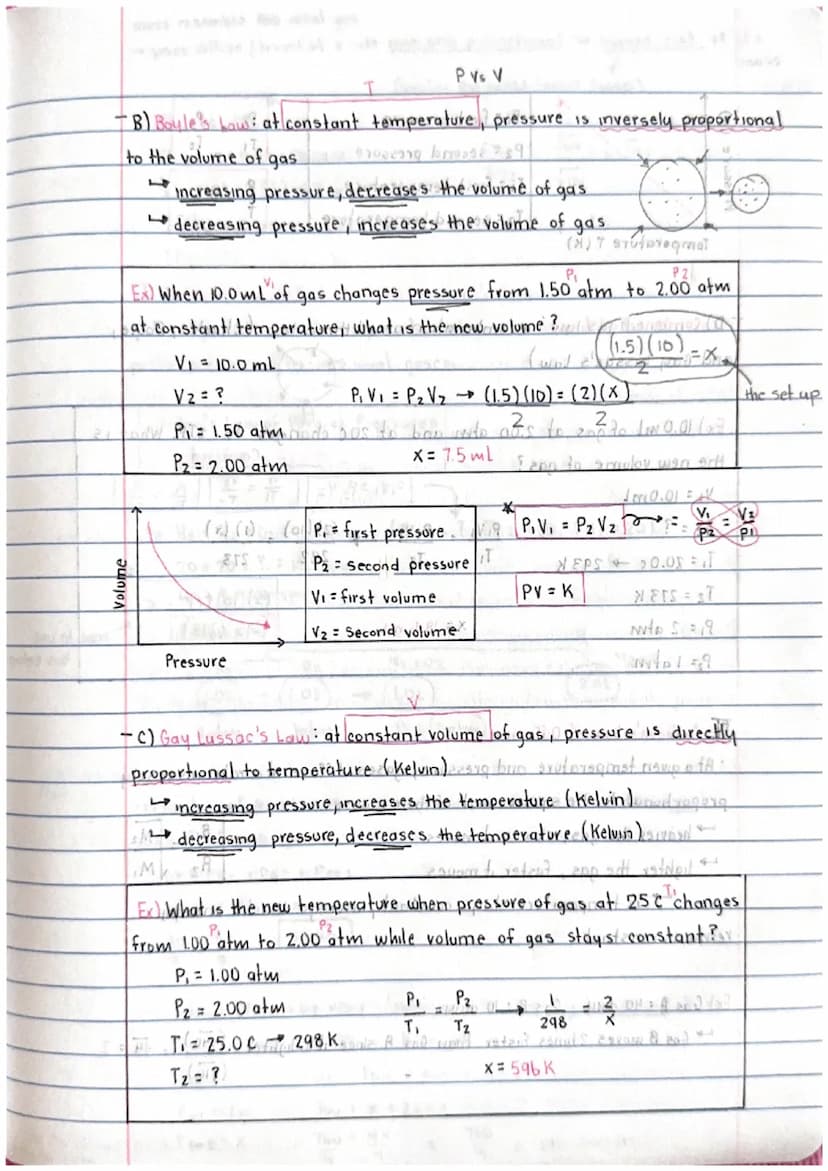 P Vs V
T
- B) Boyle's Law: at constant temperature, pressure is inversely proportional
to the volume of gas
↳ increasing pressure, decreases the volume of gas
↳ decreasing pressure, increases the volume of gas
V₁ P₁ P₂
Ex) When 10.0 mL of gas changes pressure from 1.50 atm to 2.00 atm
at constant temperature, what is the new volume?
(1.5)(10)/2 = x
the set up
V₁ = 10.0 mL
V₂ = ? P₁V₁ = P₂V₂ → (1.5)(10) = (2)(x)
2 2
P₁ = 1.50 atm
P₂ = 2.00 atm x = 7.5 mL
Volume
Pressure
P₁ = first pressure
P₂ = second pressure
V₁ = first volume
V₂ = second volume
* P₁V₁ = P₂V₂ → = V₁/P₂ = V₂/P₁
PV = K
V
- C) Gay Lussac's Law: at constant volume of gas, pressure is directly
proportional to temperature (Kelvin)
↳ increasing pressure, increases the temperature (Kelvin)
↳ decreasing pressure, decreases the temperature (Kelvin)
T₁
Ex) What is the new temperature when pressure of gas at 25°C changes
P₁ P₂
from 1.00 atm to 2.00 atm while volume of gas stays constant?
P₁ = 1.00 atm
P₂ = 2.00 atm P₁/T₁ = P₂/T₂ → 1/298 = 2/x
T₁ = 25.0 C → 298 K
T₂ = ? x = 596 K